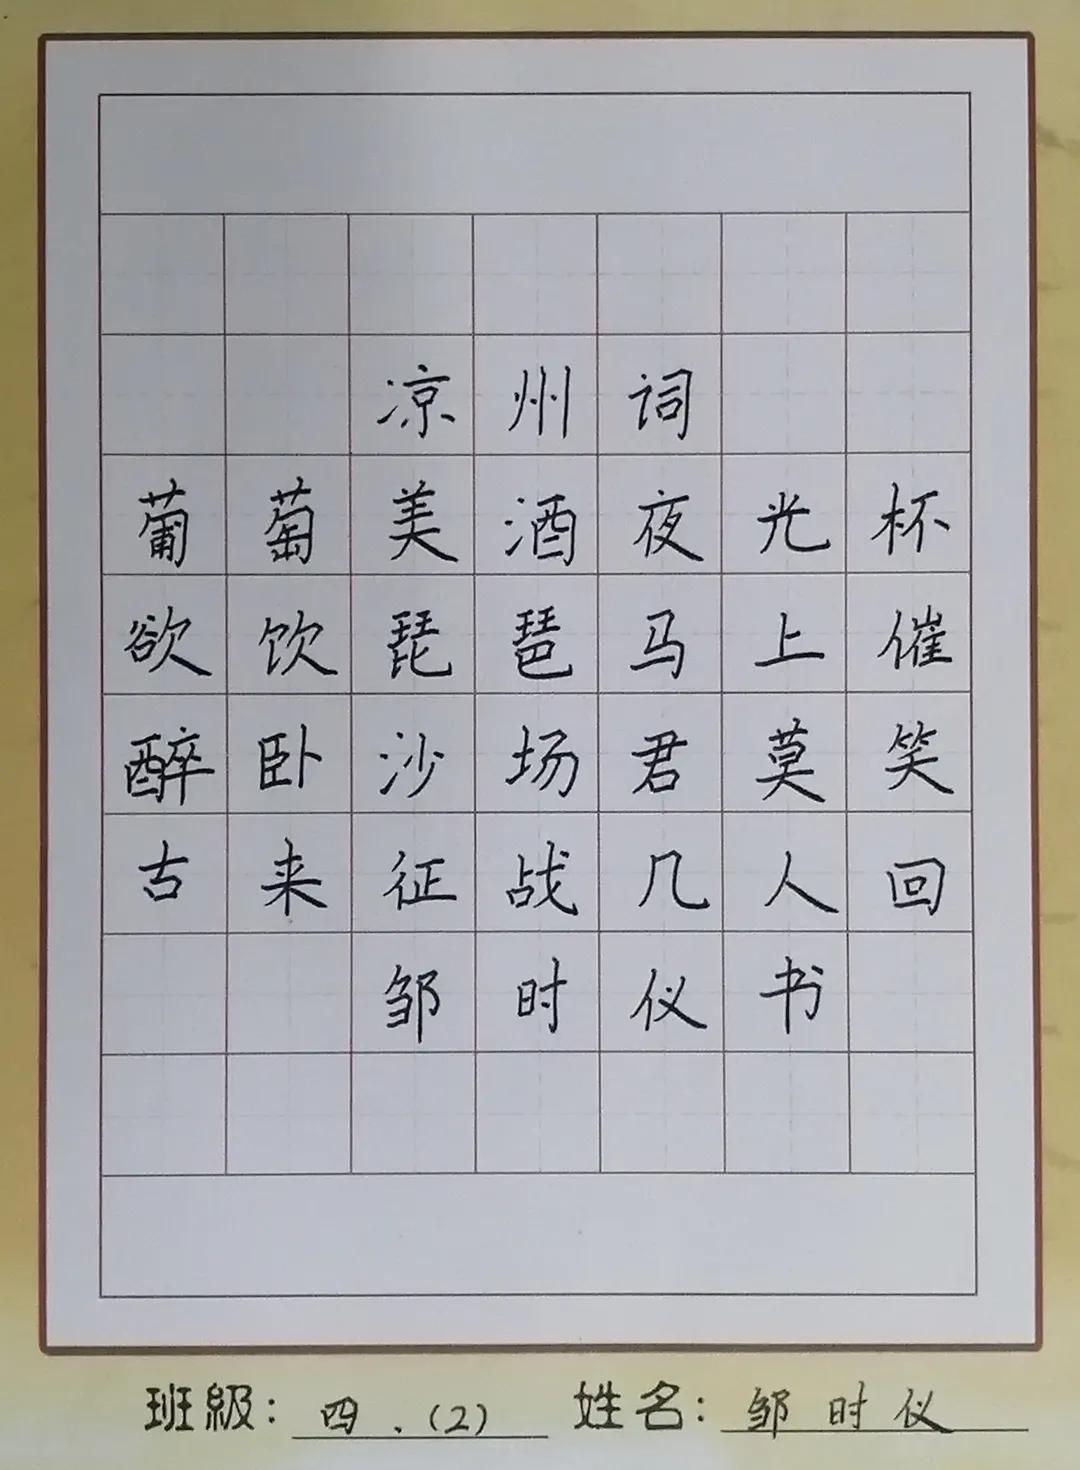 凉州词
葡萄美酒夜光杯
欲饮琵琶马上催
醉卧沙场君莫笑
古来征战几人回
邹时仪书
班級: 四.(2) 姓名: 邹时仪